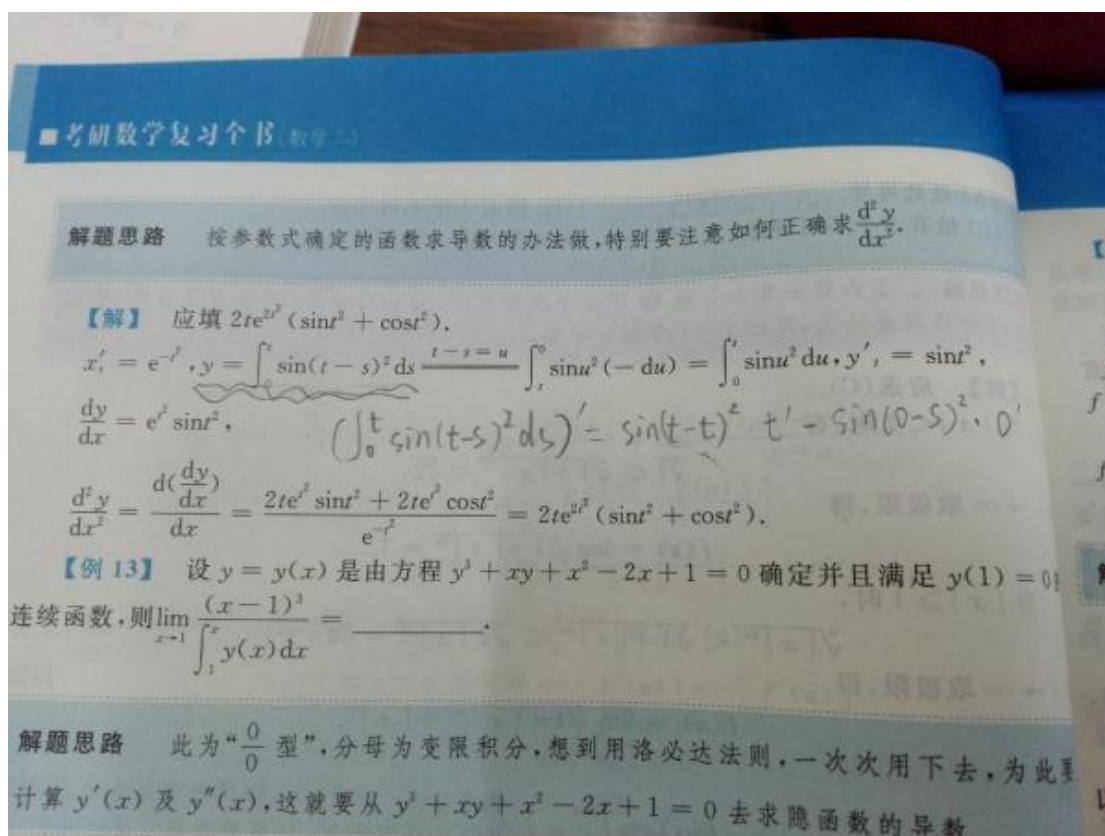 ■考研数学复习全书(数学二)
解题思路 按参数式确定的函数求导数的办法做,特别要注意如何正确求 d²y/dx².
【解】 应填 2te^{2t²}(sint² + cost²).
x'_t = e^{-t²}, y = ∫_0^t sin(t − s)²ds =(t−s=u)= ∫_t^0 sinu²(− du) = ∫_0^t sinu²du, y'_t = sint²,
dy/dx = e^{t²} sint², (∫_0^t sin(t-s)²ds)' = sin(t-t)² t' - sin(0-s)²·0'
d²y/dx² = d(dy/dx)/dx = (2te^{t²} sint² + 2te^{t²} cost²)/e^{-t²} = 2te^{2t²}(sint² + cost²).
【例 13】 设 y = y(x) 是由方程 y³ + xy + x² − 2x + 1 = 0 确定并且满足 y(1) = 0
连续函数,则 lim_{x→1} (x − 1)³/∫_1^x y(x)dx = ______.
解题思路 此为“0/0 型”,分母为变限积分,想到用洛必达法则,一次次用下去,为此
计算 y′(x) 及 y″(x),这就要从 y³ + xy + x² − 2x + 1 = 0 去求隐函数的导数